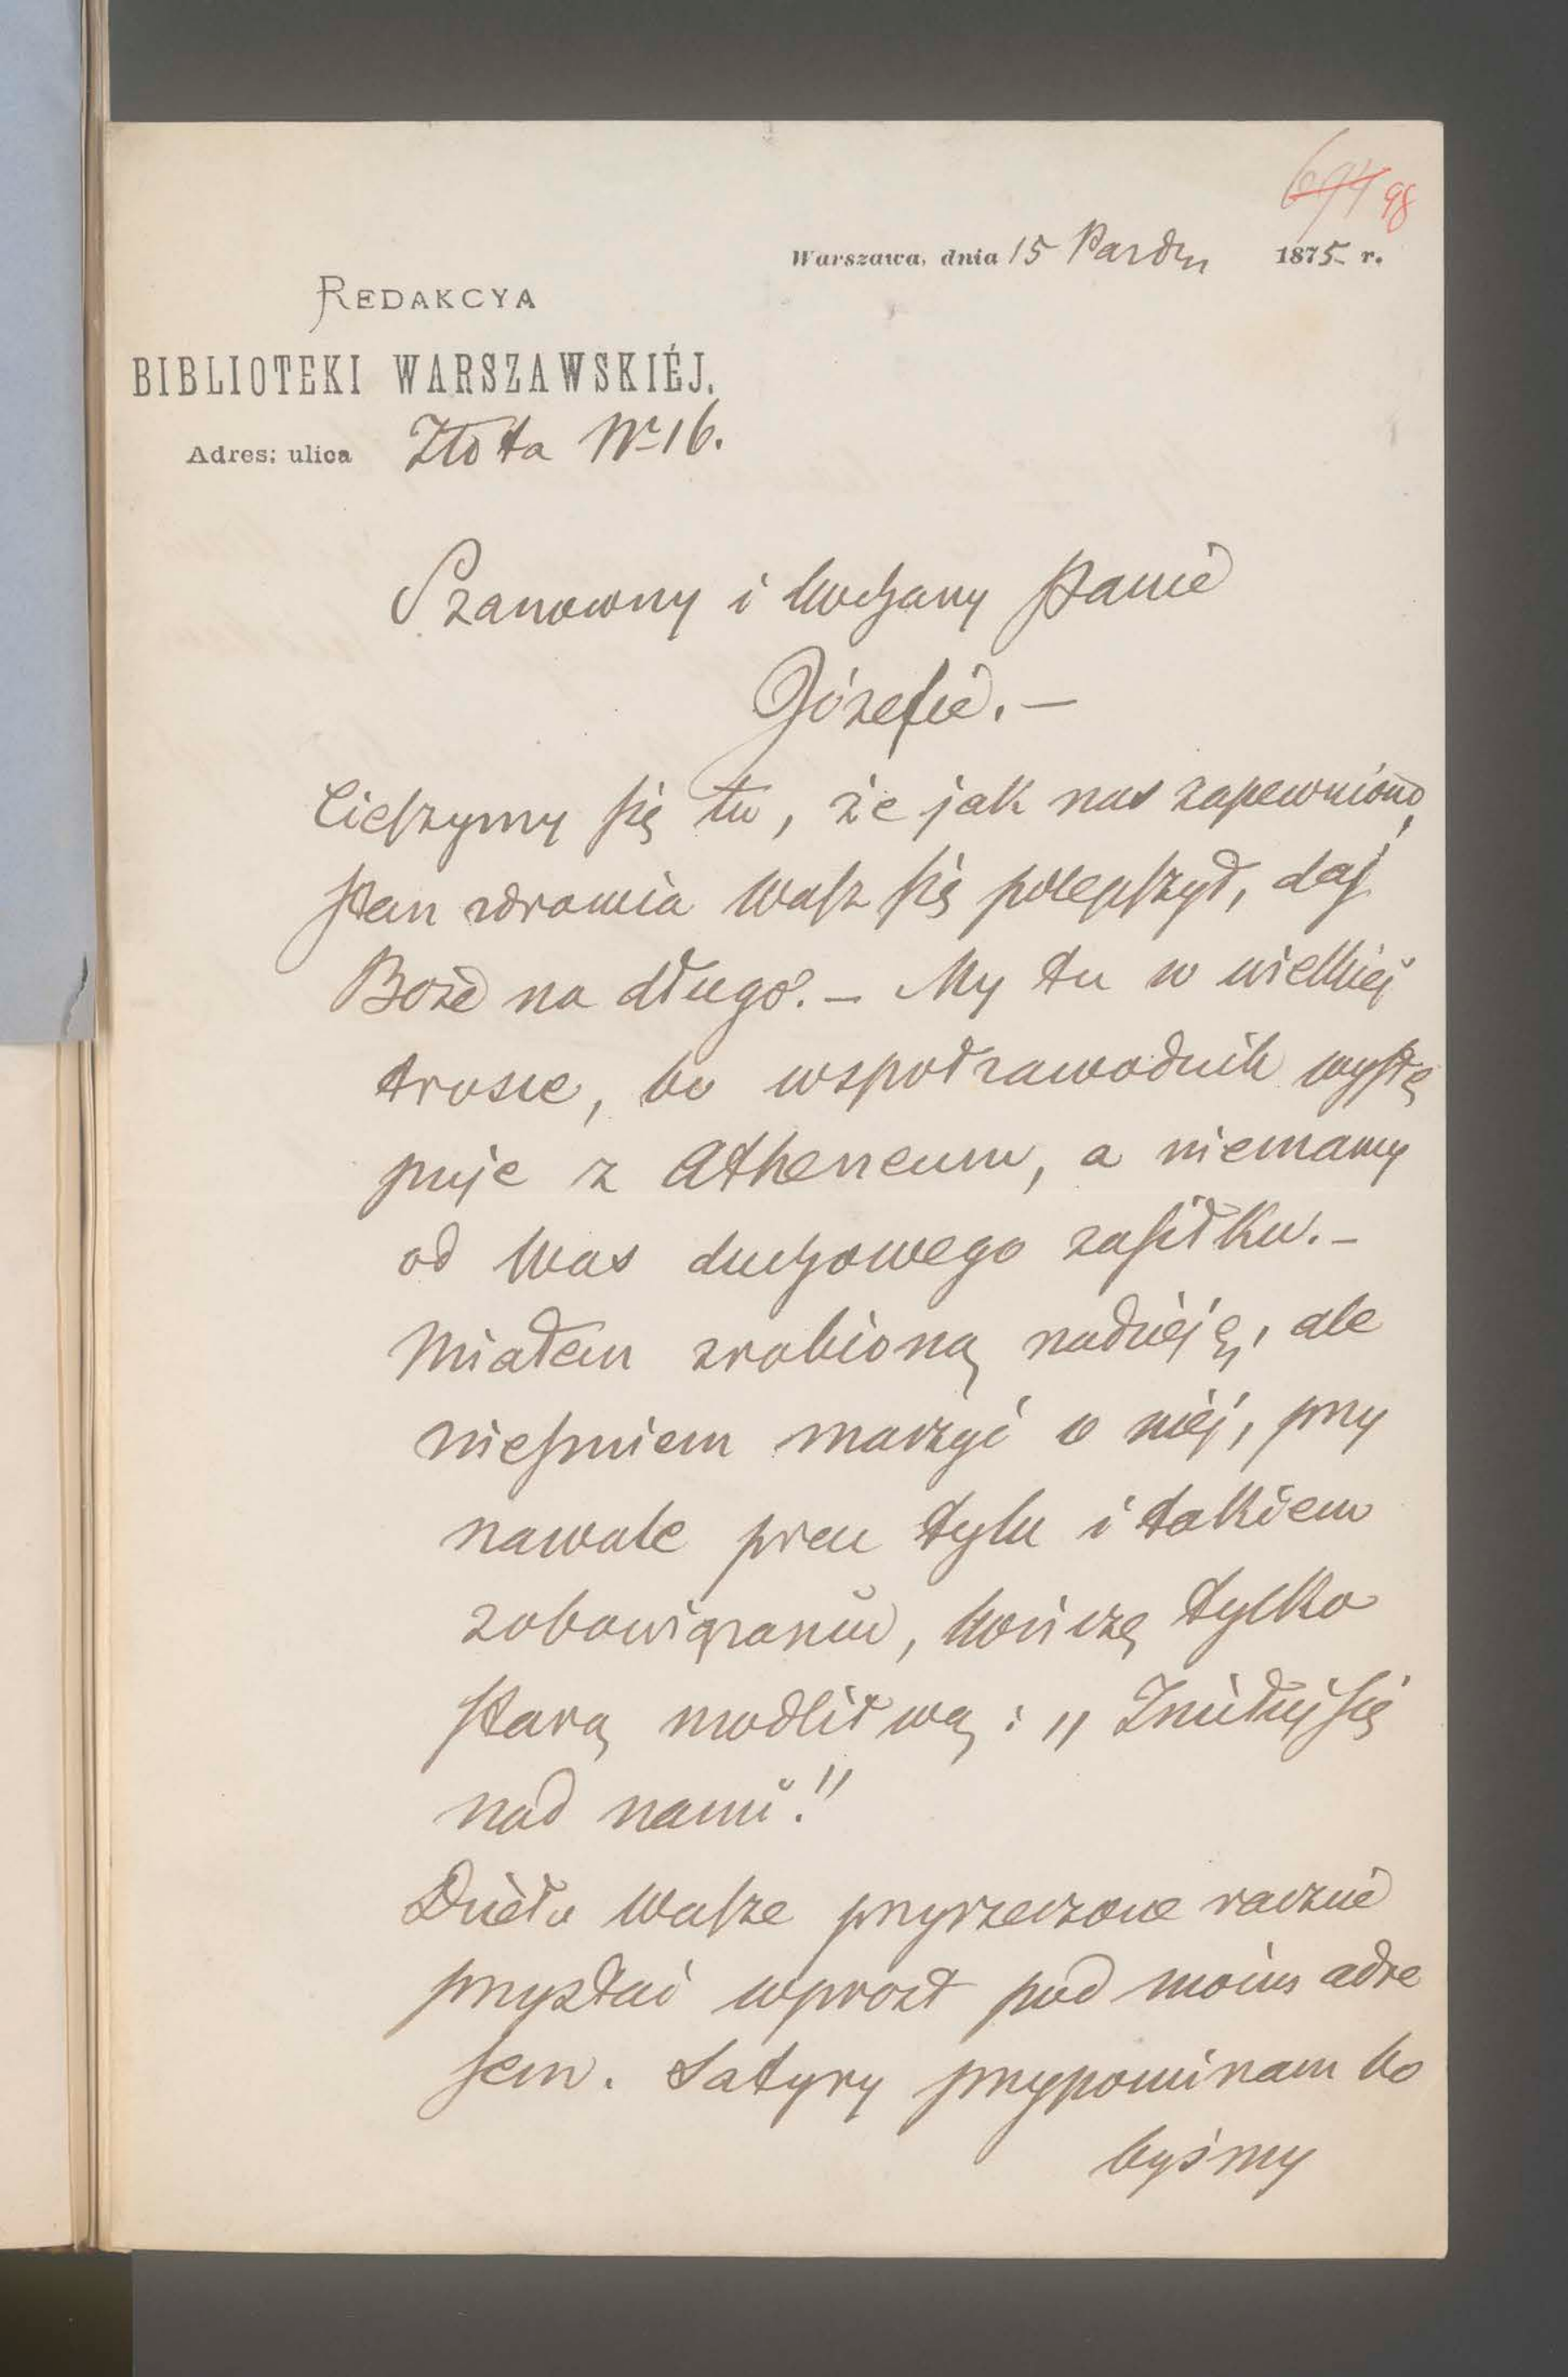 694 98
Warszawa, dnia 15 Paźdz 1875 r.
REDAKCYA
BIBLIOTEKI WARSZAWSKIÉJ.
Adres: ulica Złota Nr 16.
Szanowny i kochany Panie
Józefie. —
Cieszymy się tu, że jak nas zapewniono,
stan zdrowia Wasz się polepszył, daj
Boże na długo. — My tu w wielkiej
trosce, bo wspołzawodnik wystę
puje z Atheneum, a niemamy
od Was duchowego zasiłku. —
Miałem zrobioną nadzieję, ale
nieśmiem marzyć o niéj, przy
nawale prac tylu i takiem
zobowiązaniu, kończę tylko
starą modlitwą: „Zmiłuj się
nad nami!"
Dzieło Wasze przyrzeczone raczcie
przysłać wprost pod moim adre
sem. Satyry przypominam bo
byśmy